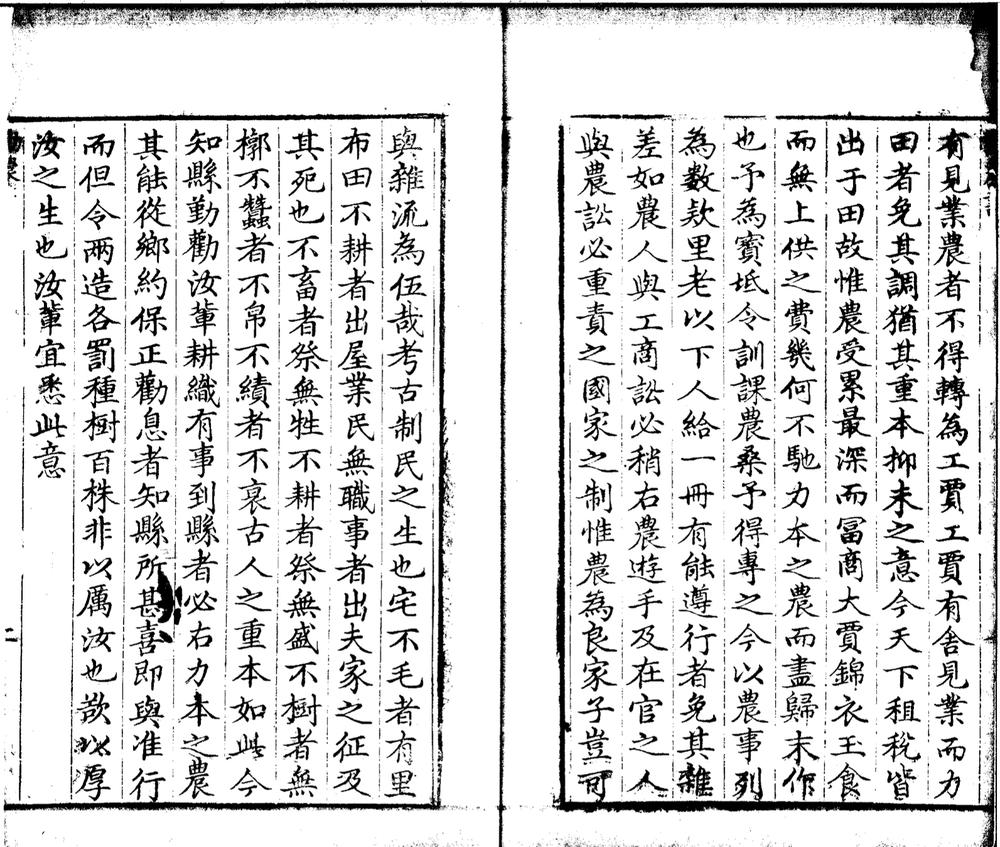 有見業農者不得轉為工賈工賈有舍見業而力
田者免其調猶其重本抑末之意今天下租稅皆
出于田故惟農受累最深而富商大賈錦衣王食
而無上供之費幾何不馳力本之農而盡歸末作
也予為寶坻令訓課農桑予得專之今以農事列
為數款里老以下人給一冊有能遵行者免其雜
差如農人與工商訟必稍右農遊手及在官之人
與農訟必重責之國家之制惟農為良家子豈可
與雜流為伍哉考古制民之生也宅不毛者有里
布田不耕者出屋業民無職事者出夫家之征及
其死也不畜者祭無牲不耕者祭無盛不樹者無
槨不蠶者不帛不績者不衰古人之重本如此今
知縣勤勸汝軰耕織有事到縣者必右力本之農
其能從鄉約保正勸息者知縣所甚喜即與准行
而但令兩造各罰種樹百株非以厲汝也欲以厚
汝之生也汝軰宜悉此意